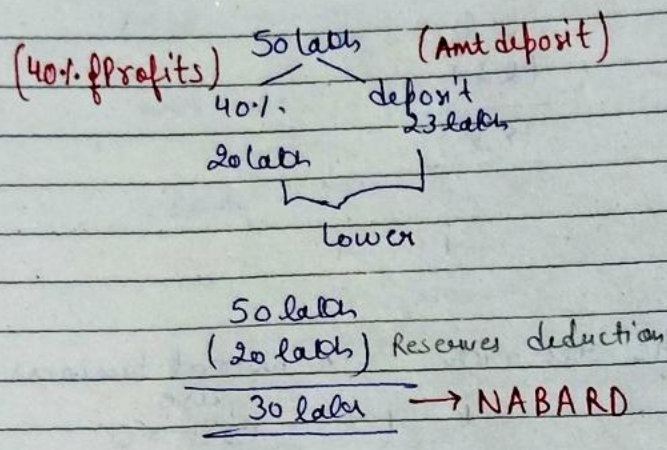 50 lakh (Amt deposit)
(40% of Profits)
40% deposit
23 lakh
20 lakh
Lower
50 lakh
(20 lakh) Reserves deduction
30 lakh → NABARD